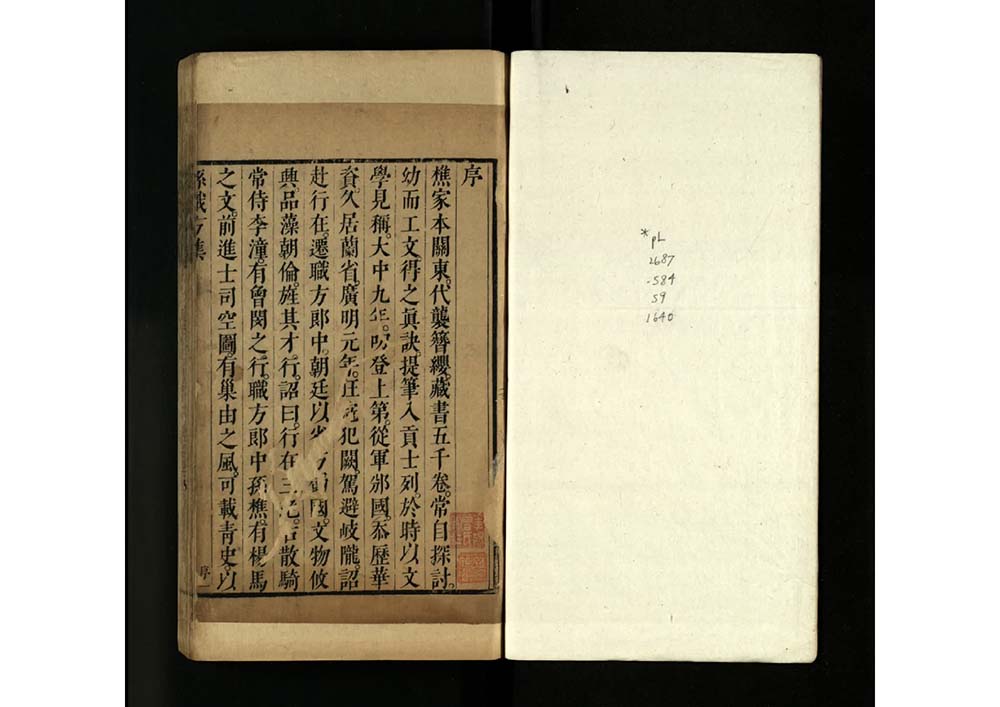 序
樵家本關東。代襲簪纓。藏書五千卷。常自探討。
幼而工文。得之眞訣。提筆入貢士列。於時以文
學見稱。大中九年。叨登上第。從軍邠國。忝歷華
資。久居蘭省。廣明元年。狂寇犯闕。駕避岐隴。詔
赴行在。遷職方郎中。朝廷以省方蜀國。文物攸
興。品藻朝倫。旌其才行。詔曰。行在三絕。右散騎
常侍李潼。有曾閔之行。職方郎中孫樵。有楊馬
之文。前進士司空圖。有巢由之風。可載靑史。以
孫職方集
序 一
*PL
2687
.S84
S9
1640